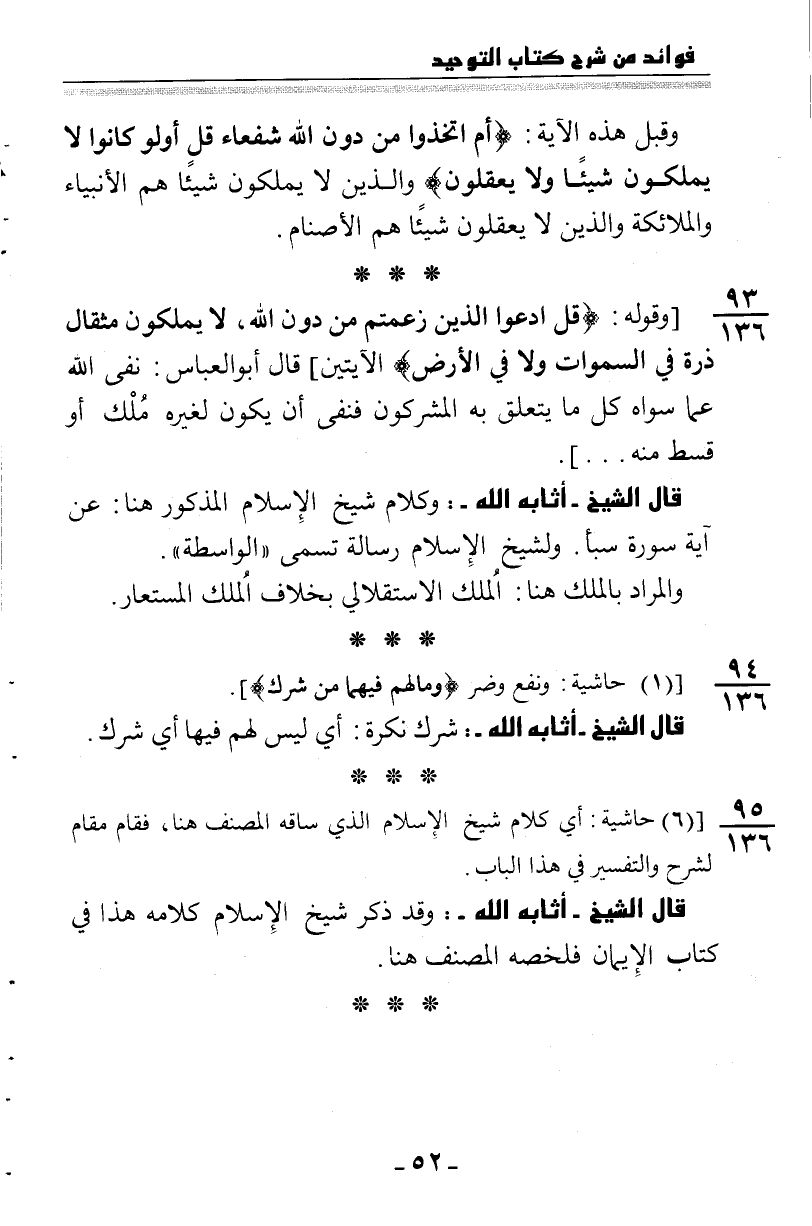 فوائد من شرح كتاب التوحيد
وقبل هذه الآية: ﴿أم اتخذوا من دون الله شفعاء قل أولو كانوا لا
يملكون شيئًا ولا يعقلون﴾ والذين لا يملكون شيئًا هم الأنبياء
والملائكة والذين لا يعقلون شيئًا هم الأصنام.
* * *
٩٣
١٣٦
[وقوله: ﴿قل ادعوا الذين زعمتم من دون الله، لا يملكون مثقال
ذرة في السموات ولا في الأرض﴾ الآيتين] قال أبوالعباس: نفى الله
عما سواه كل ما يتعلق به المشركون فنفى أن يكون لغيره مُلْك أو
قسط منه . . . ].
قال الشيخ ـ أثابه الله ـ: وكلام شيخ الإسلام المذكور هنا: عن
آية سورة سبأ. ولشيخ الإسلام رسالة تسمى «الواسطة».
والمراد بالملك هنا: المُلك الاستقلالي بخلاف المُلك المستعار.
* * *
٩٤
١٣٦
[(١) حاشية: ونفع وضر ﴿ومالهم فيهما من شرك﴾].
قال الشيخ ـ أثابه الله ـ: شرك نكرة: أي ليس لهم فيها أي شرك.
* * *
٩٥
١٣٦
[(٦) حاشية: أي كلام شيخ الإسلام الذي ساقه المصنف هنا، فقام مقام
لشرح والتفسير في هذا الباب.
قال الشيخ ـ أثابه الله ـ: وقد ذكر شيخ الإسلام كلامه هذا في
كتاب الإيمان فلخصه المصنف هنا.
* * *
ـ ٥٢ ـ